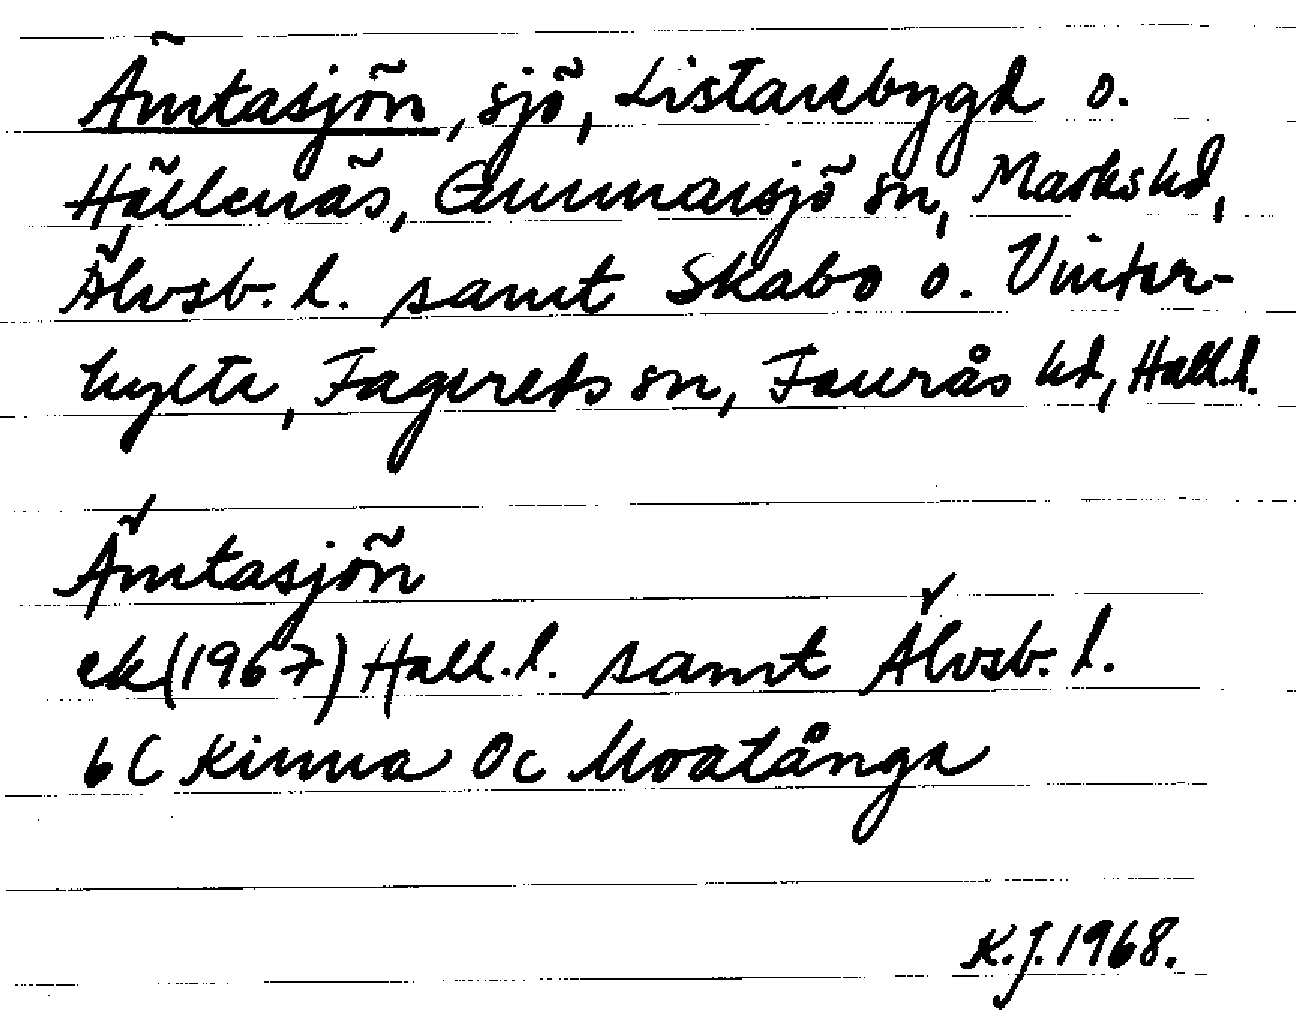 Ämtasjön, sjö, Listarebygd o.
Hällenäs, Gunnarsjö sn, Marks hd,
Älvsb. l. samt Skabo o. Vinter-
hylte, Fagereds sn, Faurås hd, Hall. l.
Ämtasjön
ek (1967) Hall. l. samt Älvsb. l.
6C Kinna 0c Moatånga
K.J. 1968.